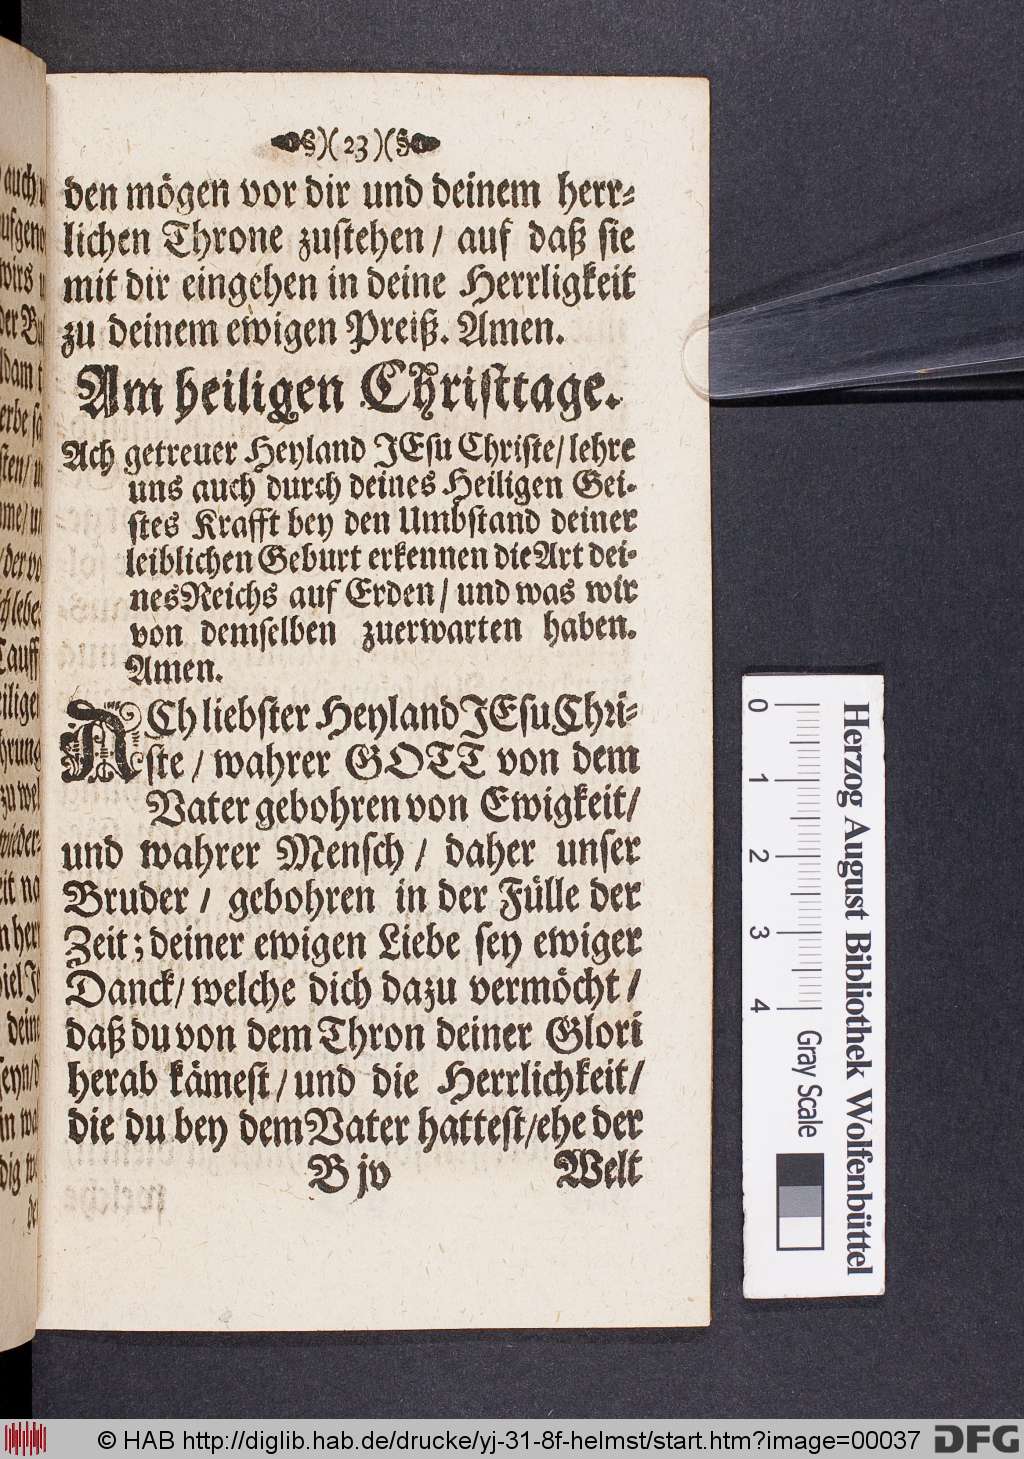 )( 23 )(
den mögen vor dir und deinem herr-
lichen Throne zustehen / auf daß sie
mit dir eingehen in deine Herrligkeit
zu deinem ewigen Preiß. Amen.
Am heiligen Christtage.
Ach getreuer Heyland JEsu Christe / lehre
uns auch durch deines Heiligen Gei-
stes Krafft bey den Umbstand deiner
leiblichen Geburt erkennen die Art dei-
nes Reichs auf Erden / und was wir
von demselben zuerwarten haben.
Amen.
ACh liebster Heyland JEsu Chri-
ste / wahrer GOTT von dem
Vater gebohren von Ewigkeit /
und wahrer Mensch / daher unser
Bruder / gebohren in der Fülle der
Zeit; deiner ewigen Liebe sey ewiger
Danck / welche dich dazu vermöcht /
daß du von dem Thron deiner Glori
herab kämest / und die Herrlichkeit /
die du bey dem Vater hattest / ehe der
B jv
Welt
Herzog August Bibliothek Wolfenbüttel
0 1 2 3 4
Gray Scale
© HAB http://diglib.hab.de/drucke/yj-31-8f-helmst/start.htm?image=00037
DFG